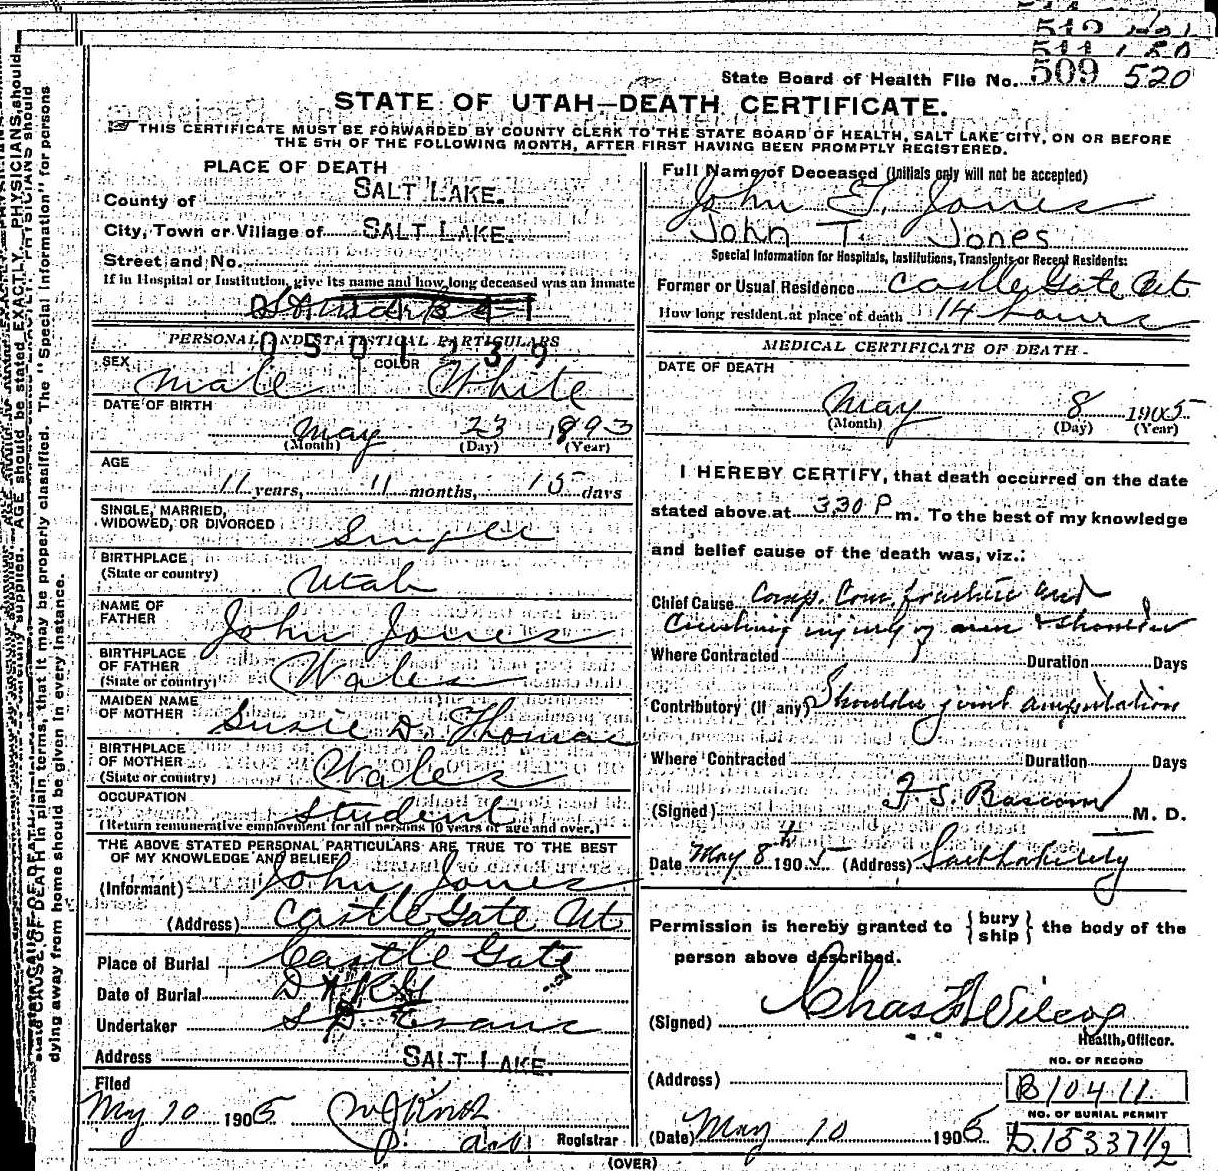 512
511 150
State Board of Health File No. 509 520
STATE OF UTAH—DEATH CERTIFICATE.
THIS CERTIFICATE MUST BE FORWARDED BY COUNTY CLERK TO THE STATE BOARD OF HEALTH, SALT LAKE CITY, ON OR BEFORE
THE 5TH OF THE FOLLOWING MONTH, AFTER FIRST HAVING BEEN PROMPTLY REGISTERED.
PLACE OF DEATH
County of SALT LAKE.
City, Town or Village of SALT LAKE.
Street and No.
If in Hospital or Institution, give its name and how long deceased was an inmate
PERSONAL AND STATISTICAL PARTICULARS
0501239
SEX Male COLOR White
DATE OF BIRTH
May 23 1893
(Month) (Day) (Year)
AGE
11 years, 11 months, 15 days
SINGLE, MARRIED,
WIDOWED, OR DIVORCED Single
BIRTHPLACE
(State or country) Utah
NAME OF
FATHER John Jones
BIRTHPLACE
OF FATHER
(State or country) Wales
MAIDEN NAME
OF MOTHER Susie D. Thomas
BIRTHPLACE
OF MOTHER
(State or country) Wales
OCCUPATION
Student
(Return remunerative employment for all persons 10 years of age and over.)
THE ABOVE STATED PERSONAL PARTICULARS ARE TRUE TO THE BEST
OF MY KNOWLEDGE AND BELIEF
(Informant) John Jones
(Address) Castle Gate Ut
Place of Burial Castle Gate
Date of Burial
Undertaker S D Evans
Address SALT LAKE.
Filed
May 10 1905
Registrar
Full Name of Deceased (Initials only will not be accepted)
John T. Jones
John T. Jones
Special Information for Hospitals, Institutions, Transients or Recent Residents:
Former or Usual Residence Castle Gate Ut
How long resident at place of death 14 hours
MEDICAL CERTIFICATE OF DEATH
DATE OF DEATH
May 8 1905
(Month) (Day) (Year)
I HEREBY CERTIFY, that death occurred on the date
stated above at 3.30 P m. To the best of my knowledge
and belief cause of the death was, viz.:
Chief Cause Comp. Com. fracture and
Crushing injury of arm & shoulder
Where Contracted Duration Days
Contributory (If any) Shoulder joint amputation
Where Contracted Duration Days
(Signed) F. S. Bascom M. D.
Date May 8th 1905 (Address) Salt Lake City
Permission is hereby granted to {bury ship} the body of the
person above described.
(Signed) Chas F Wilcox
Health Officer.
NO. OF RECORD
(Address) B10411.
NO. OF BURIAL PERMIT
(Date) May 10 1905 D.15337 1/2
(OVER)
state CAUSE OF DEATH in plain terms, that it may be properly classified. The "Special Information" for persons
dying away from home should be given in every instance.